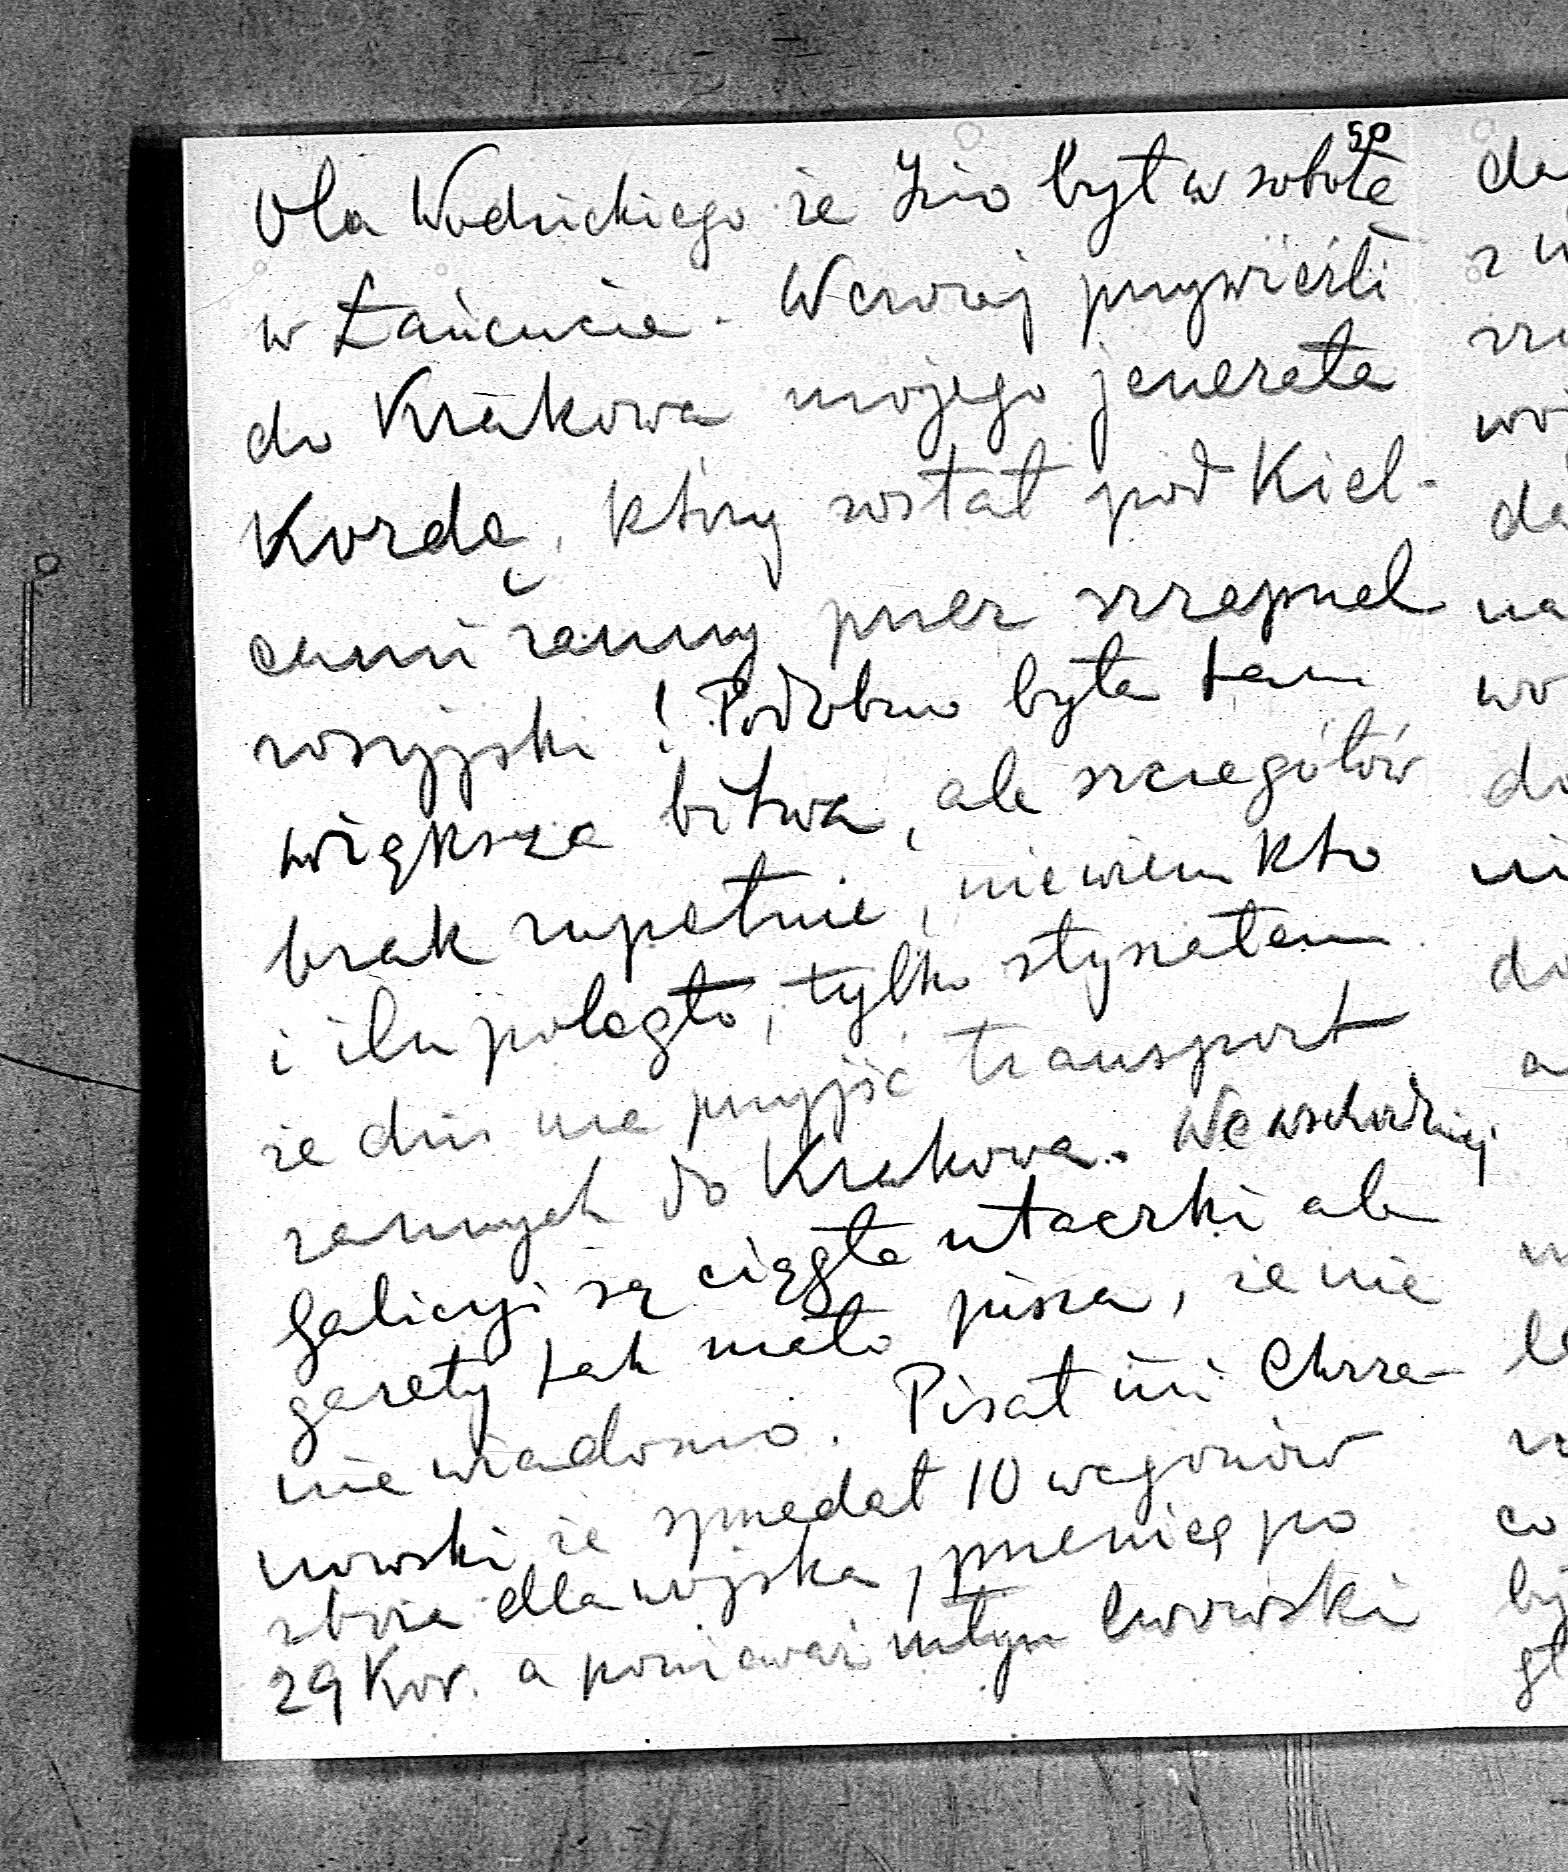 50
Ola Wodzickiego że Izio był w sobotę
w Łańcucie. Wczoraj przywieźli
do Krakowa mojego jenerała
Kordę, który został pod Kiel-
cami ranny przez szrapnel
rosyjski! Podobno była tam
większa bitwa, ale szczegółów
brak zupełnie, nie wiem kto
i ilu poległo, tylko słyszałem
że dziś ma przyjść transport
rannych do Krakowa. We wschodniej
Galicyi są ciągłe utarczki ale
gazety tak mało piszą, że nic
nie wiadomo. Pisał mi Chrza-
nowski że sprzedał 10 wagonów
zboża dla wojska, pszenicę po
29 Kor. a ponieważ młyn lwowski
da
z w
wo
da
na
wo
do
ni
do
a
le
co
by
gł